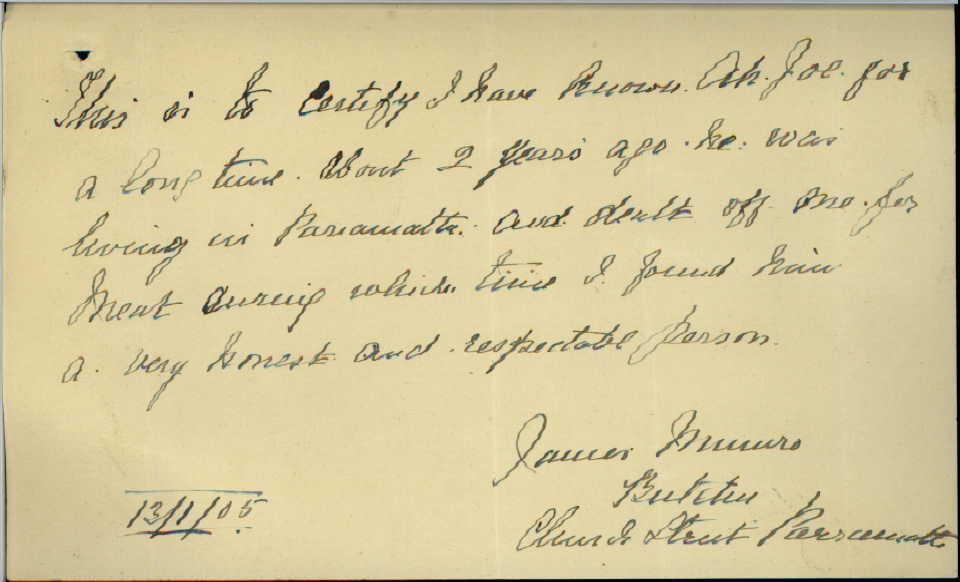 This is to certify I have known Ah. Joe. for
a long time. About 2 years ago. he. was
living in Parramatta. and dealt off me. for
Meat during which time I found him
a. very honest and respectable person.
James Munro
Butcher
13/1/05
Church Street Parramatta